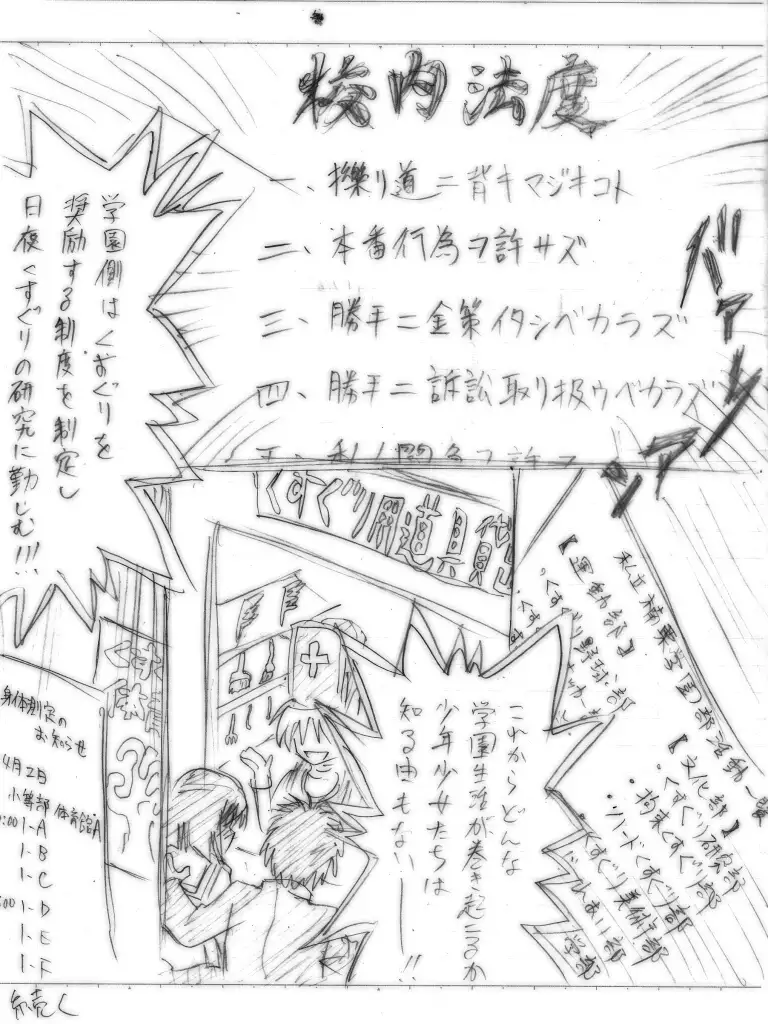 校内法度
一、擽リ道ニ背キマジキコト
二、本番行為ヲ許サズ
三、勝手ニ金策イタシベカラズ
四、勝手ニ訴訟取リ扱ウベカラズ
バァァーン
学園側はくすぐりを
奨励する制度を制定し
日夜くすぐりの研究に勤しむ!!!
くすぐり用道具貸出
部活動一覧
【運動部】
・くすぐり野球部
【文化部】
・くすぐり研究部
・拘束くすぐり部
・ソフトくすぐり部
くすぐり美術部
これからどんな
学園生活が巻き起こるか
少年少女たちは
知る由もない――!!
くすぐ
体育
身体測定の
お知らせ
4月2日
小等部 体育館A
1-A
1-B
1-C
1-D
1-E
1-F
続く